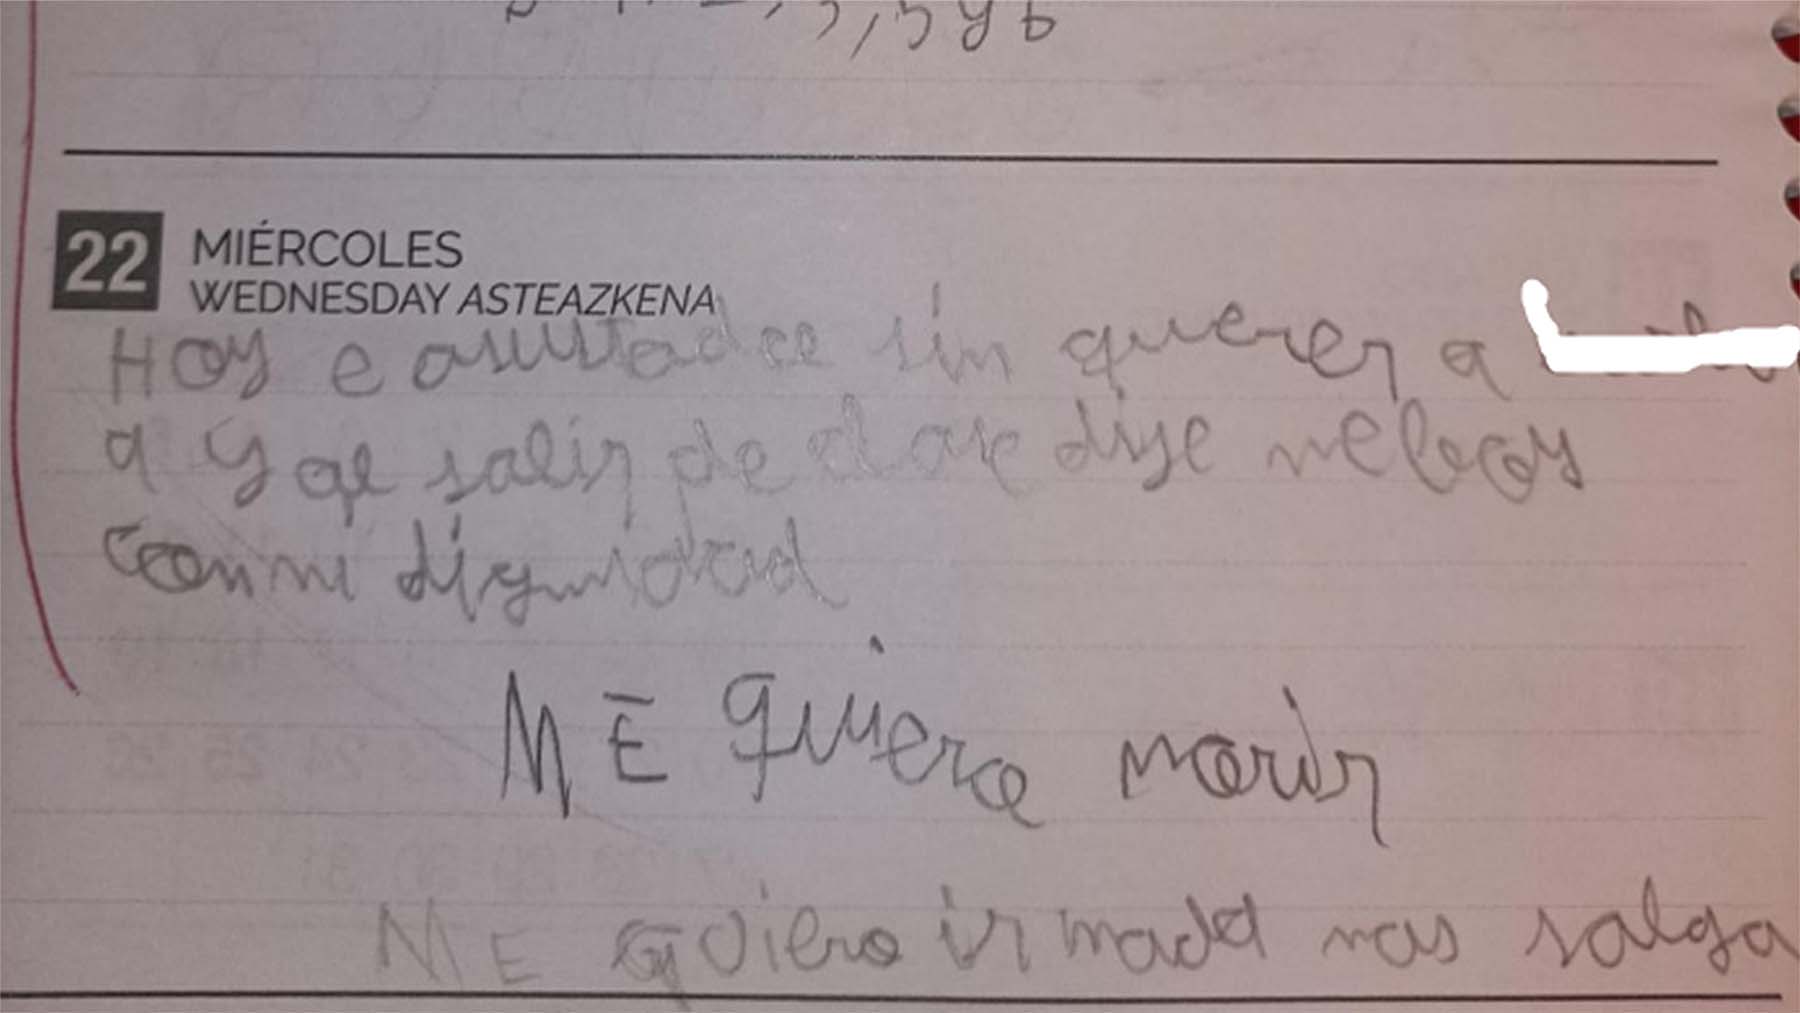 22 MIÉRCOLES
WEDNESDAY ASTEAZKENA
Hoy e asustado sin querer a
a y al salir de clase dije me boy
con mi dignidad
ME quiero morir
ME Quiero ir nada mas salga